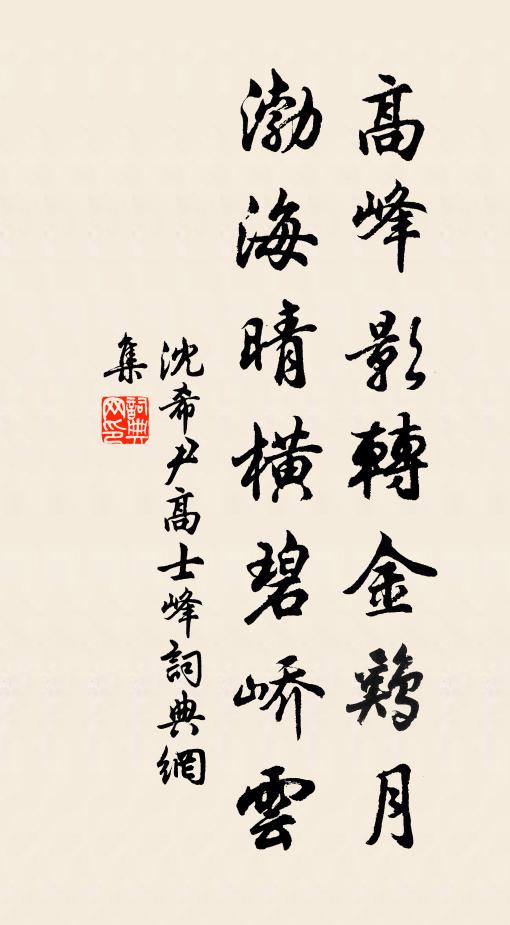 高峰影轉金鷄月
渤海晴橫碧嶠雲
沈希尹高士峰詞典網
集
詞典
网印